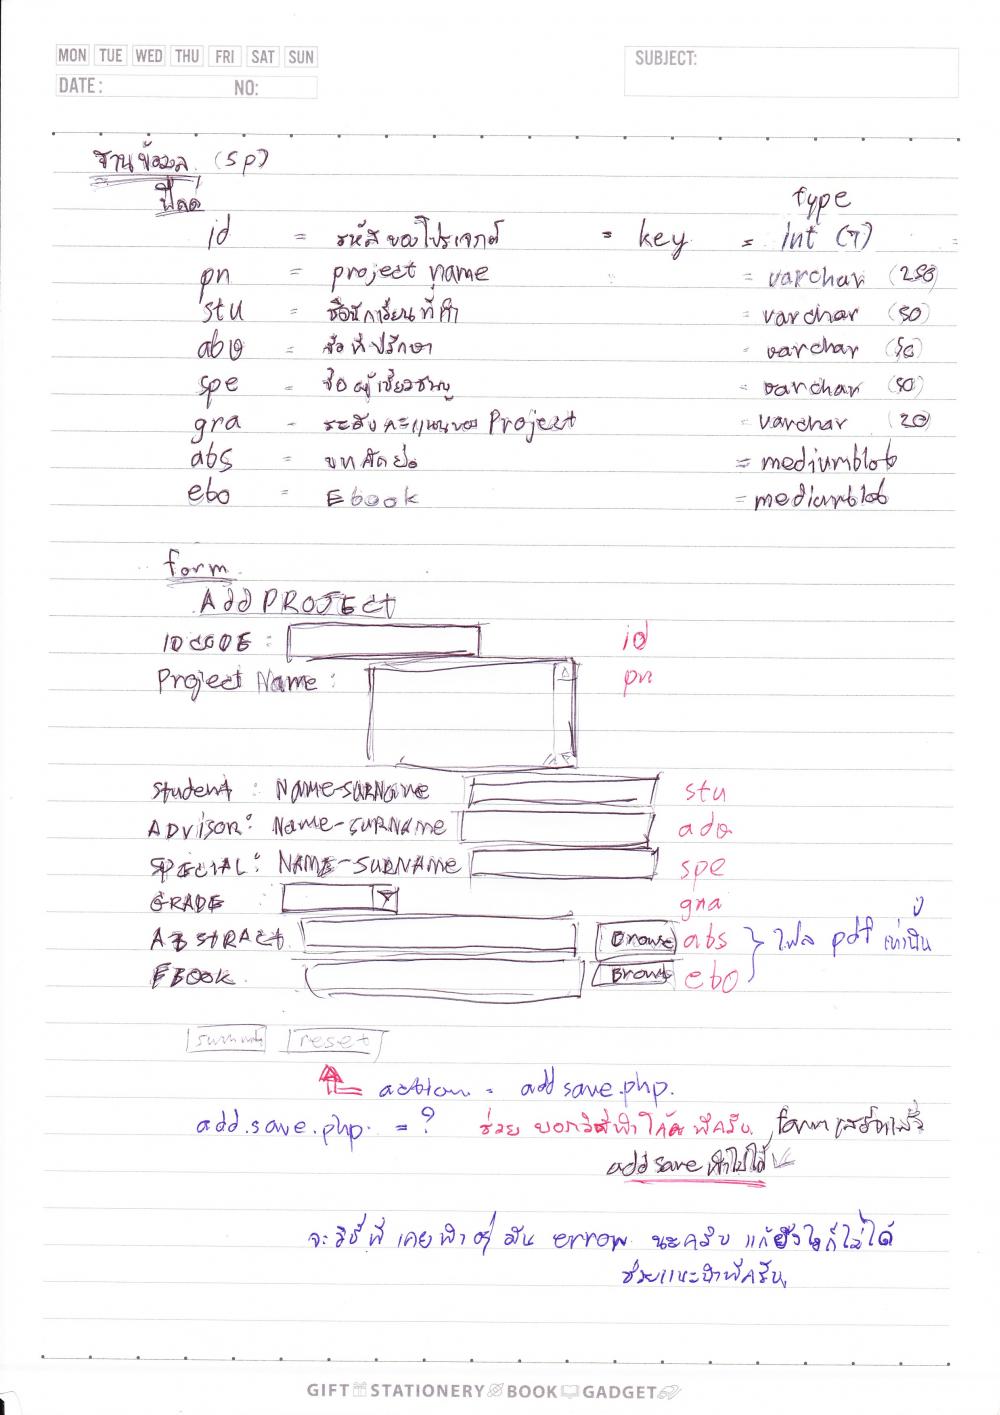 MON TUE WED THU FRI SAT SUN
SUBJECT:
DATE: NO:
ฐานข้อมูล (sp)
ฟีลด์ type
id = รหัสของโปรเจกต์ = key = int (7)
pn = project name = varchar (250)
stu = ชื่อนักเรียนที่ทำ = varchar (50)
adv = ชื่อที่ปรึกษา = varchar (50)
spe = ชื่อผู้เชี่ยวชาญ = varchar (50)
gra - ระดับคะแนนของ Project = varchar (20)
abs = บทคัดย่อ = mediumblob
ebo = Ebook = mediumblob
form
Add PROJECT
ID CODE : id
Project Name : pn
Student : NAME-SURNAME stu
ADVISOR: NAME-SURNAME adv
SPECIAL: NAME-SURNAME spe
GRADE : gra
ABSTRACT. Browse abs
EBOOK. Browse ebo
ไฟล์ pdf เท่านั้น
reset
action = add save.php.
add.save.php. = ? ช่วย บอกวิธีทำ ให้ พี่ครับ form เสร็จแล้ว
add save ทำไม่ได้
error นะครับ แก้ยังไงก็ไม่ได้
ช่วยแนะนำพี่ครับ
GIFT STATIONERY BOOK GADGET